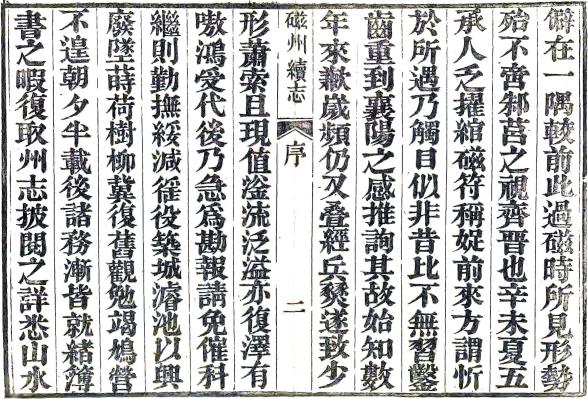 僻在一隅較前此過磁時所見形勢
殆不啻邾莒之視齊晋也辛未夏五
承人乏擢綰磁符稱娖前來方謂忻
於所遇乃觸目似非昔比不無習鑿
齒重到襄陽之感推詢其故始知數
年來歉歲頻仍又疊經兵燹遂致少
磁州續志
序
二
形蕭索且現值滏流泛溢亦復澤有
嗷鴻受代後乃急為勘報請免催科
繼則勤撫綏減徭役築城濬池以興
廢墜蒔荷樹柳冀復舊觀勉竭鳩營
不遑朝夕半載後諸務漸皆就緒簿
書之暇復取州志披閱之詳悉山水